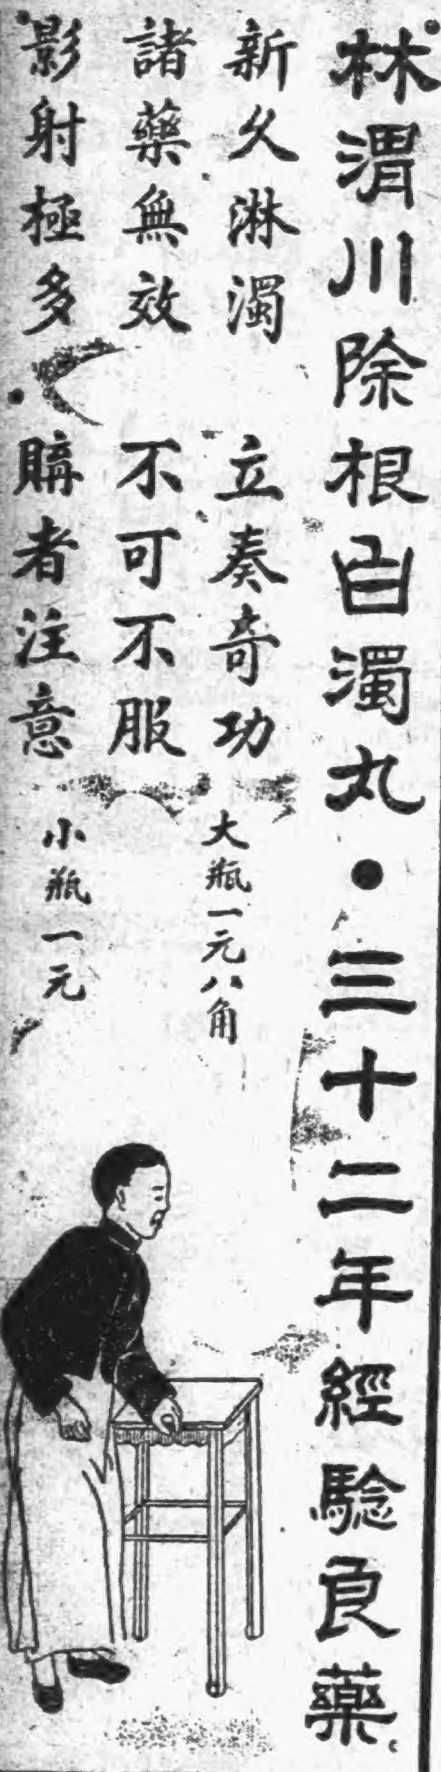 林渭川除根白濁丸・三十二年經驗良藥
新久淋濁 立奏奇功
諸藥無效 不可不服
影射極多 購者注意
大瓶一元八角
小瓶一元